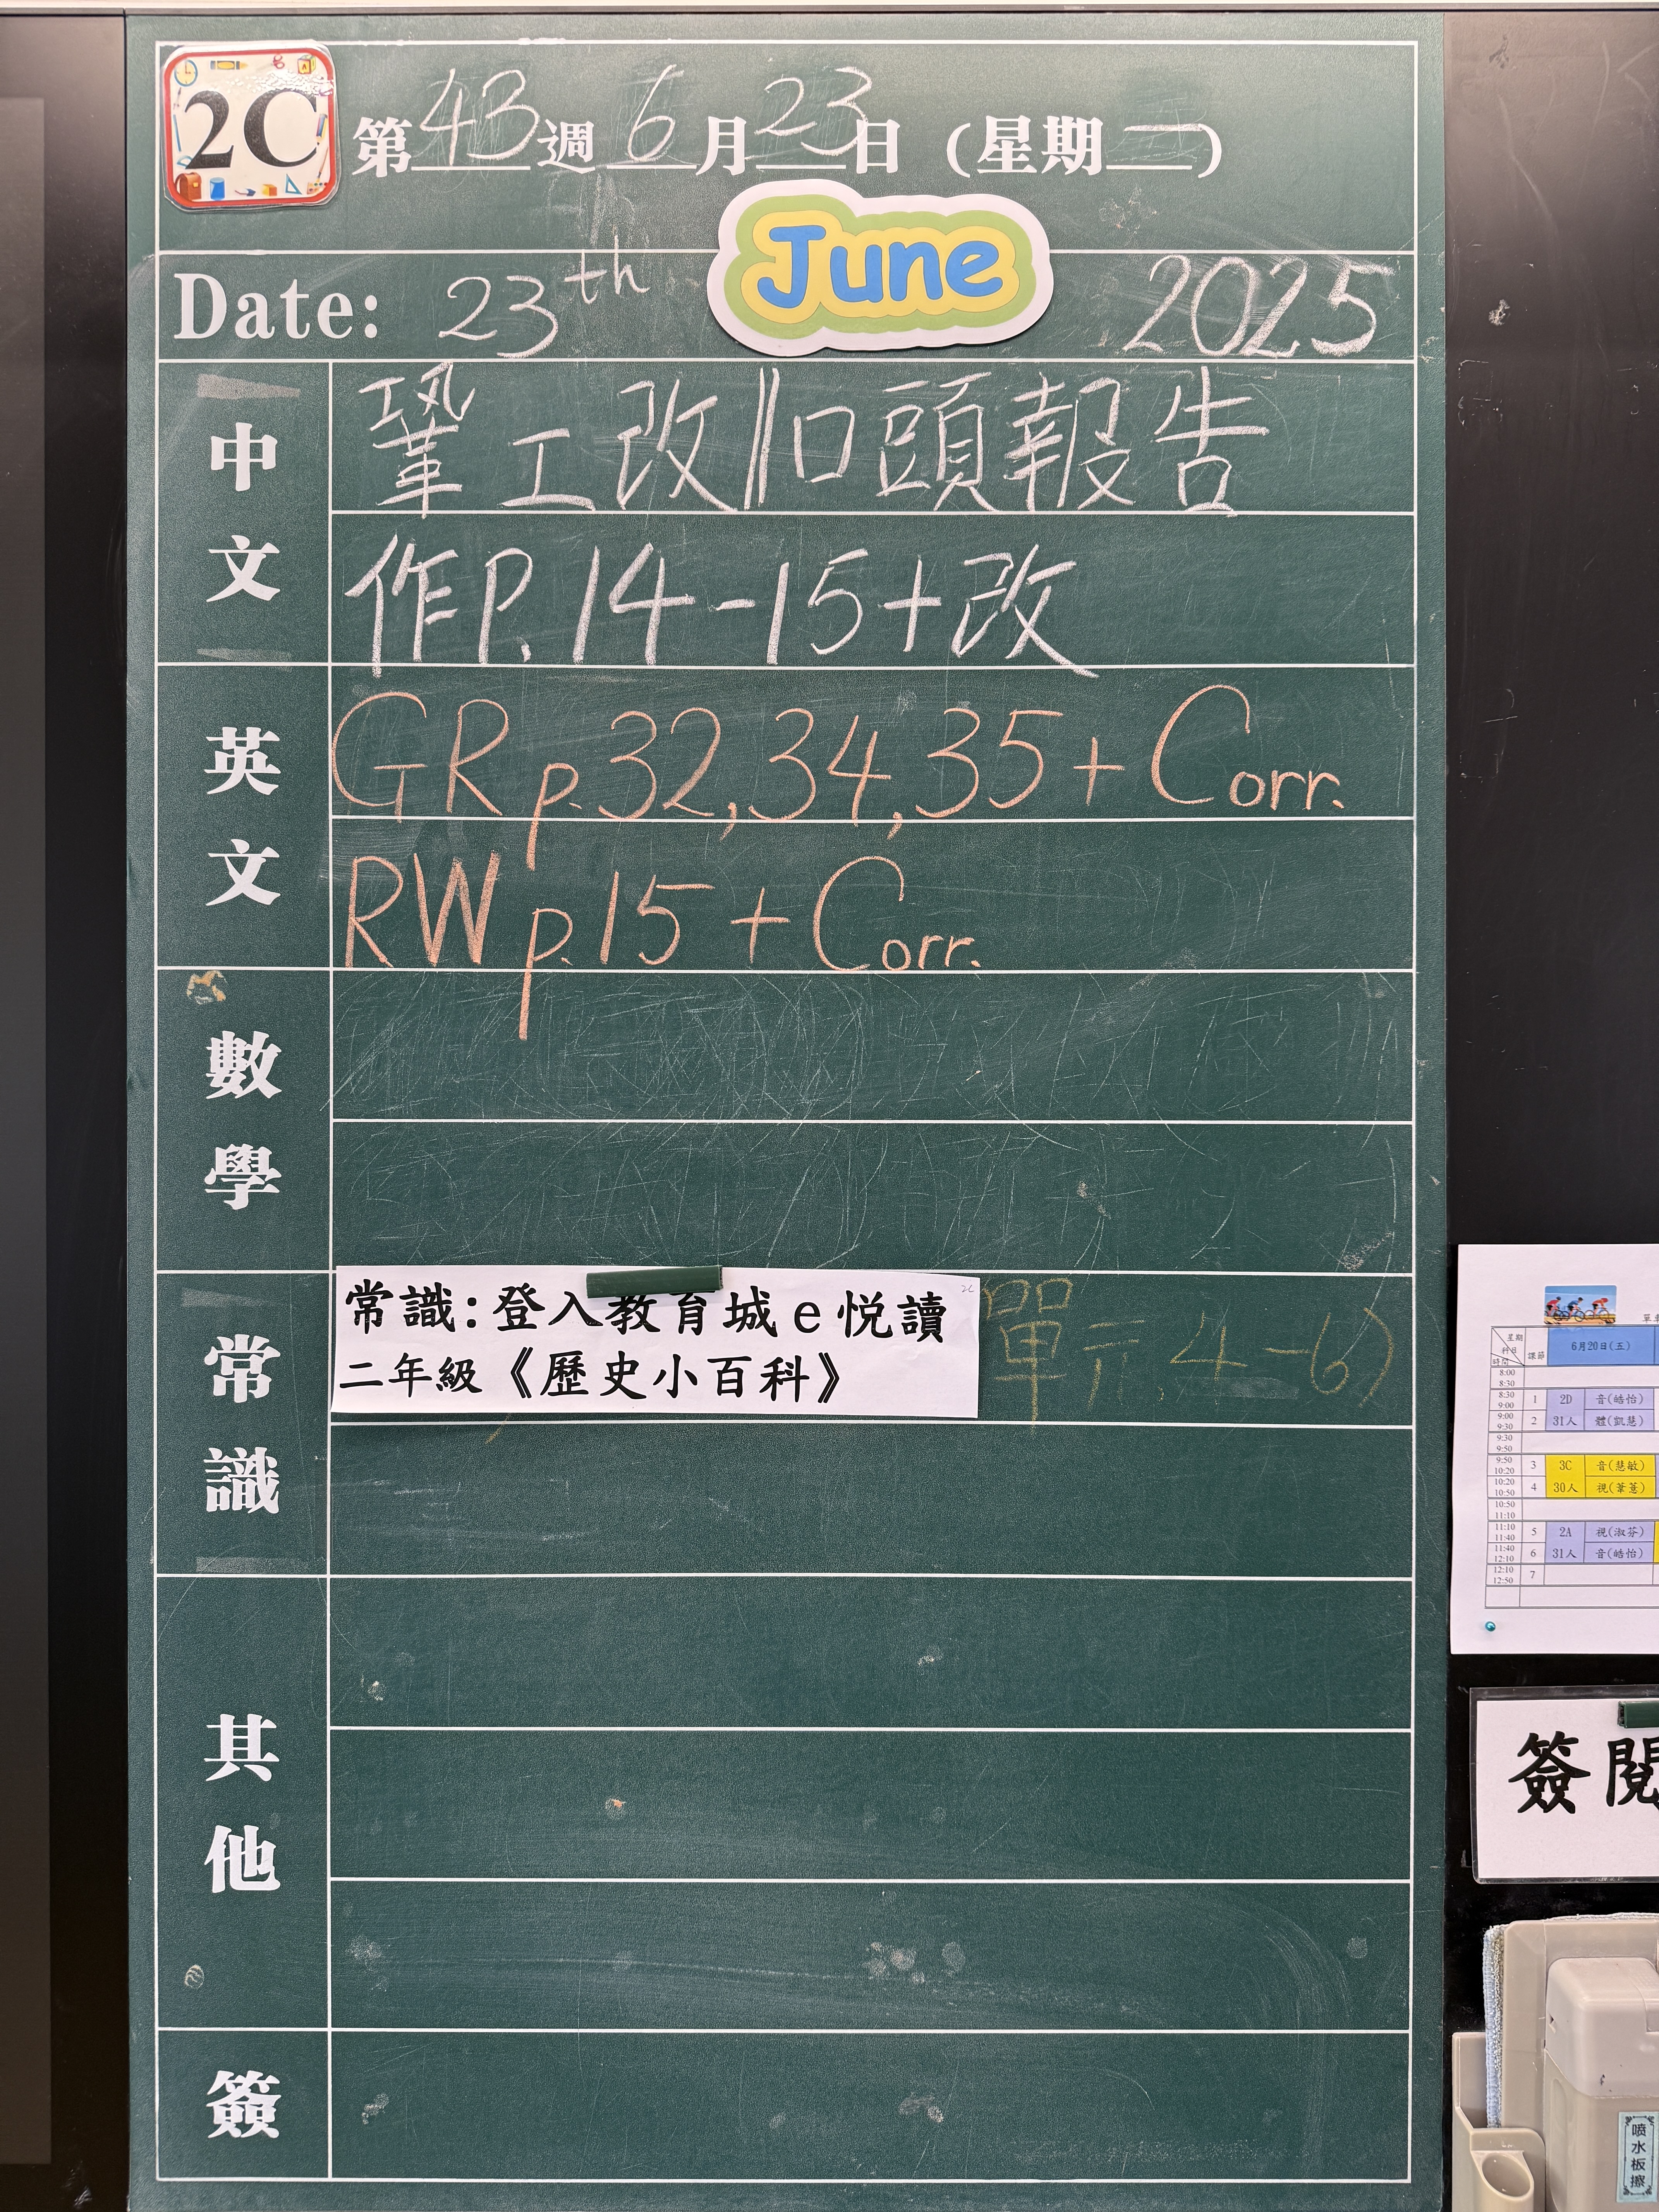 2C
第43週6月23日(星期一)
Date: 23th June 2025
中文
鞏工改||口頭報告
作P.14-15+改
英文
GR p.32,34,35+Corr.
RW p.15+Corr.
數學
常識
常識:登入教育城e悅讀
二年級《歷史小百科》
2C
單元4-6)
其他
簽
星期
科目
時間
課節
6月20日(五)
8:00
8:30
8:30
9:00
1
2D
音(皓怡)
9:00
9:30
2
31人
體(凱慧)
9:30
9:50
9:50
10:20
3
3C
音(慧敏)
10:20
10:50
4
30人
10:50
11:10
11:10
11:40
5
2A
視(淑芬)
11:40
12:10
6
31人
音(皓怡)
12:10
12:50
7
簽閱
噴水板擦